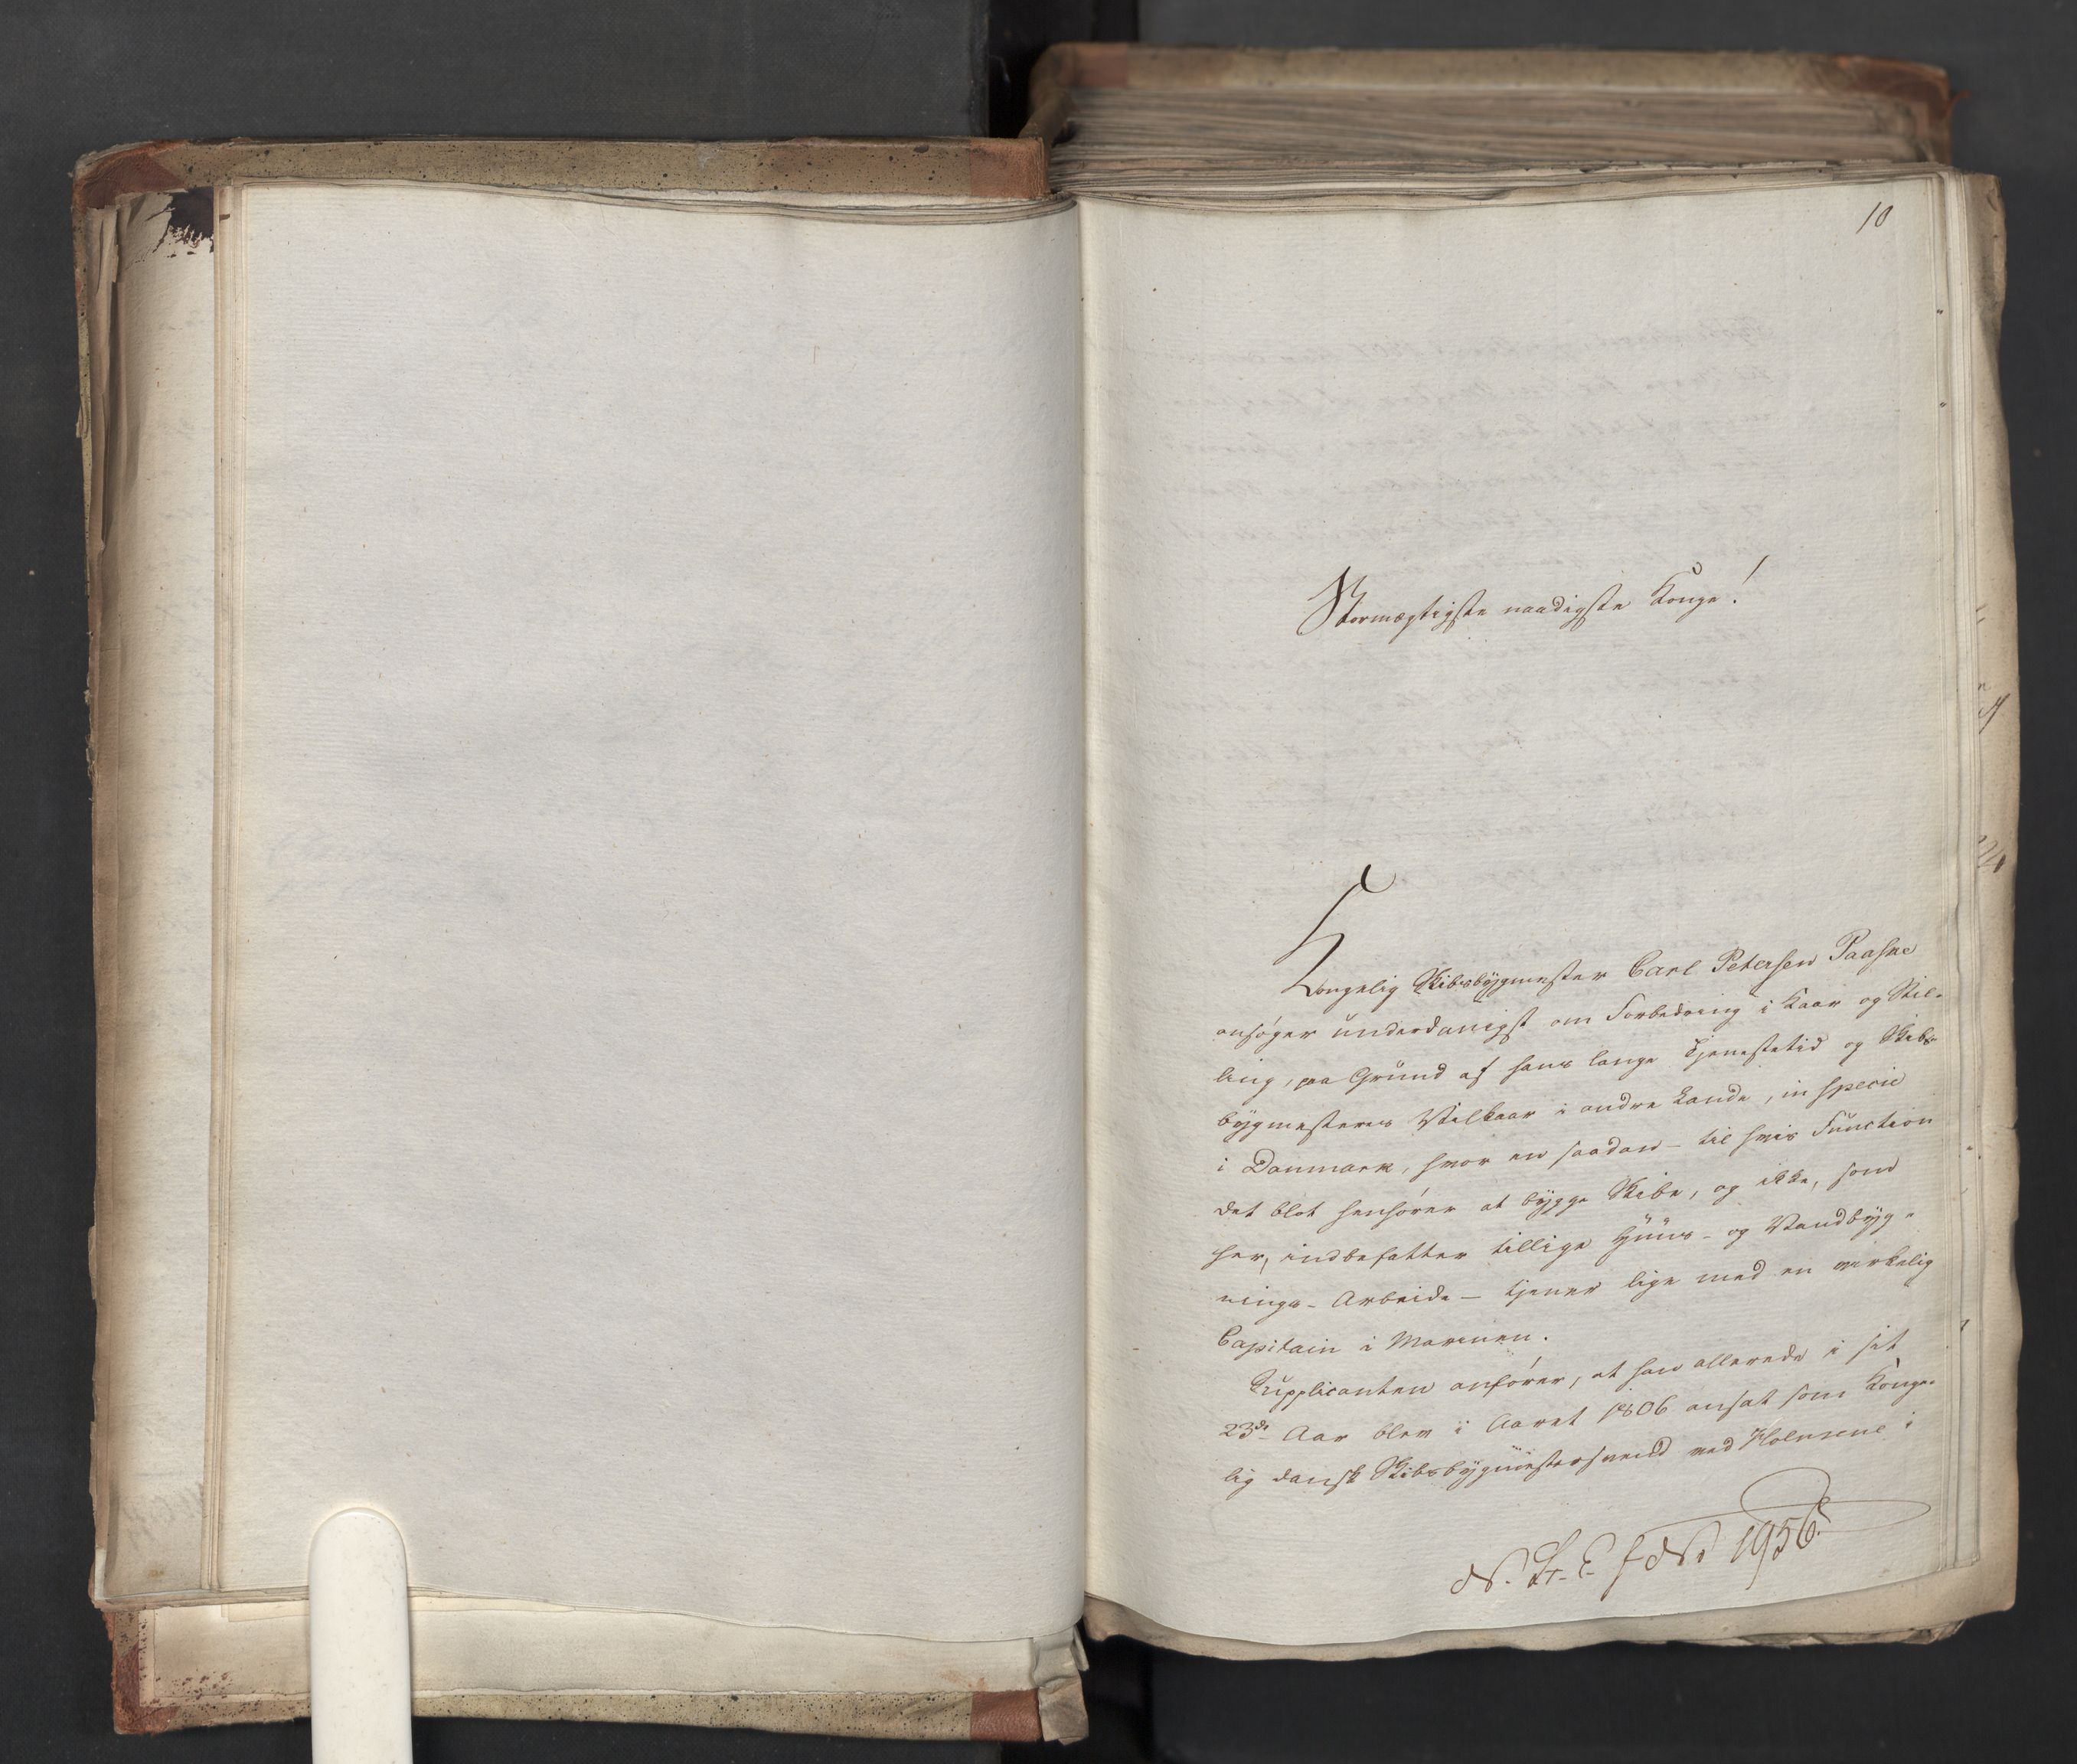 10
Stormægtigste naadigste Konge!
Kongelig Skibsbÿgmester Carl Petersen Paaske
ansøger underdanigst om Forbedring i Kaar og Stil-
ling, paa Grund af hans lange Tjenestetid og Skibs-
bÿgmesteres Vilkaar i andre Lande, in specie
i Danmark, hvor en saadan – til hvis Function
det blot henhører at bÿgge Skibe, og ikke, som
her, indbefatter tillige Huus- og Vandbÿg-
nings-Arbeide – tjener lige med en virkelig
Capitain i Marinen.
Supplicanten anfører, at han allerede i sit
23de Aar blev i Aaret 1806 ansat som Konge-
lig dansk Skibsbÿgmestersvend ved Holmene i
1956